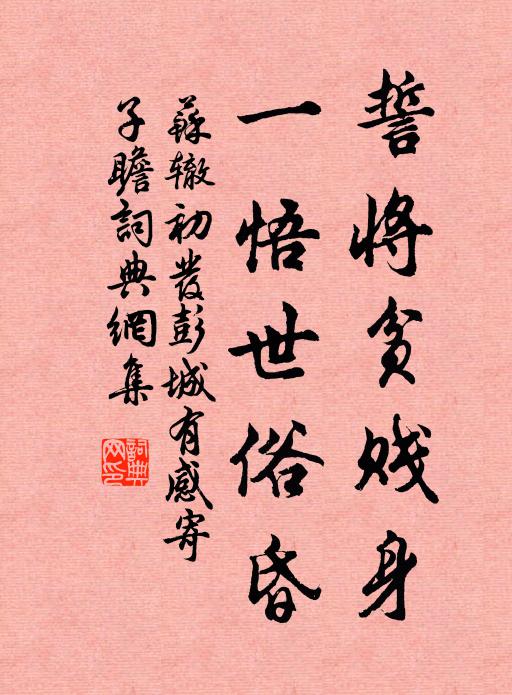 誓將貧賤身
一悟世俗昏
蘇轍初發彭城有感寄
子瞻詞典網集
詞典网印